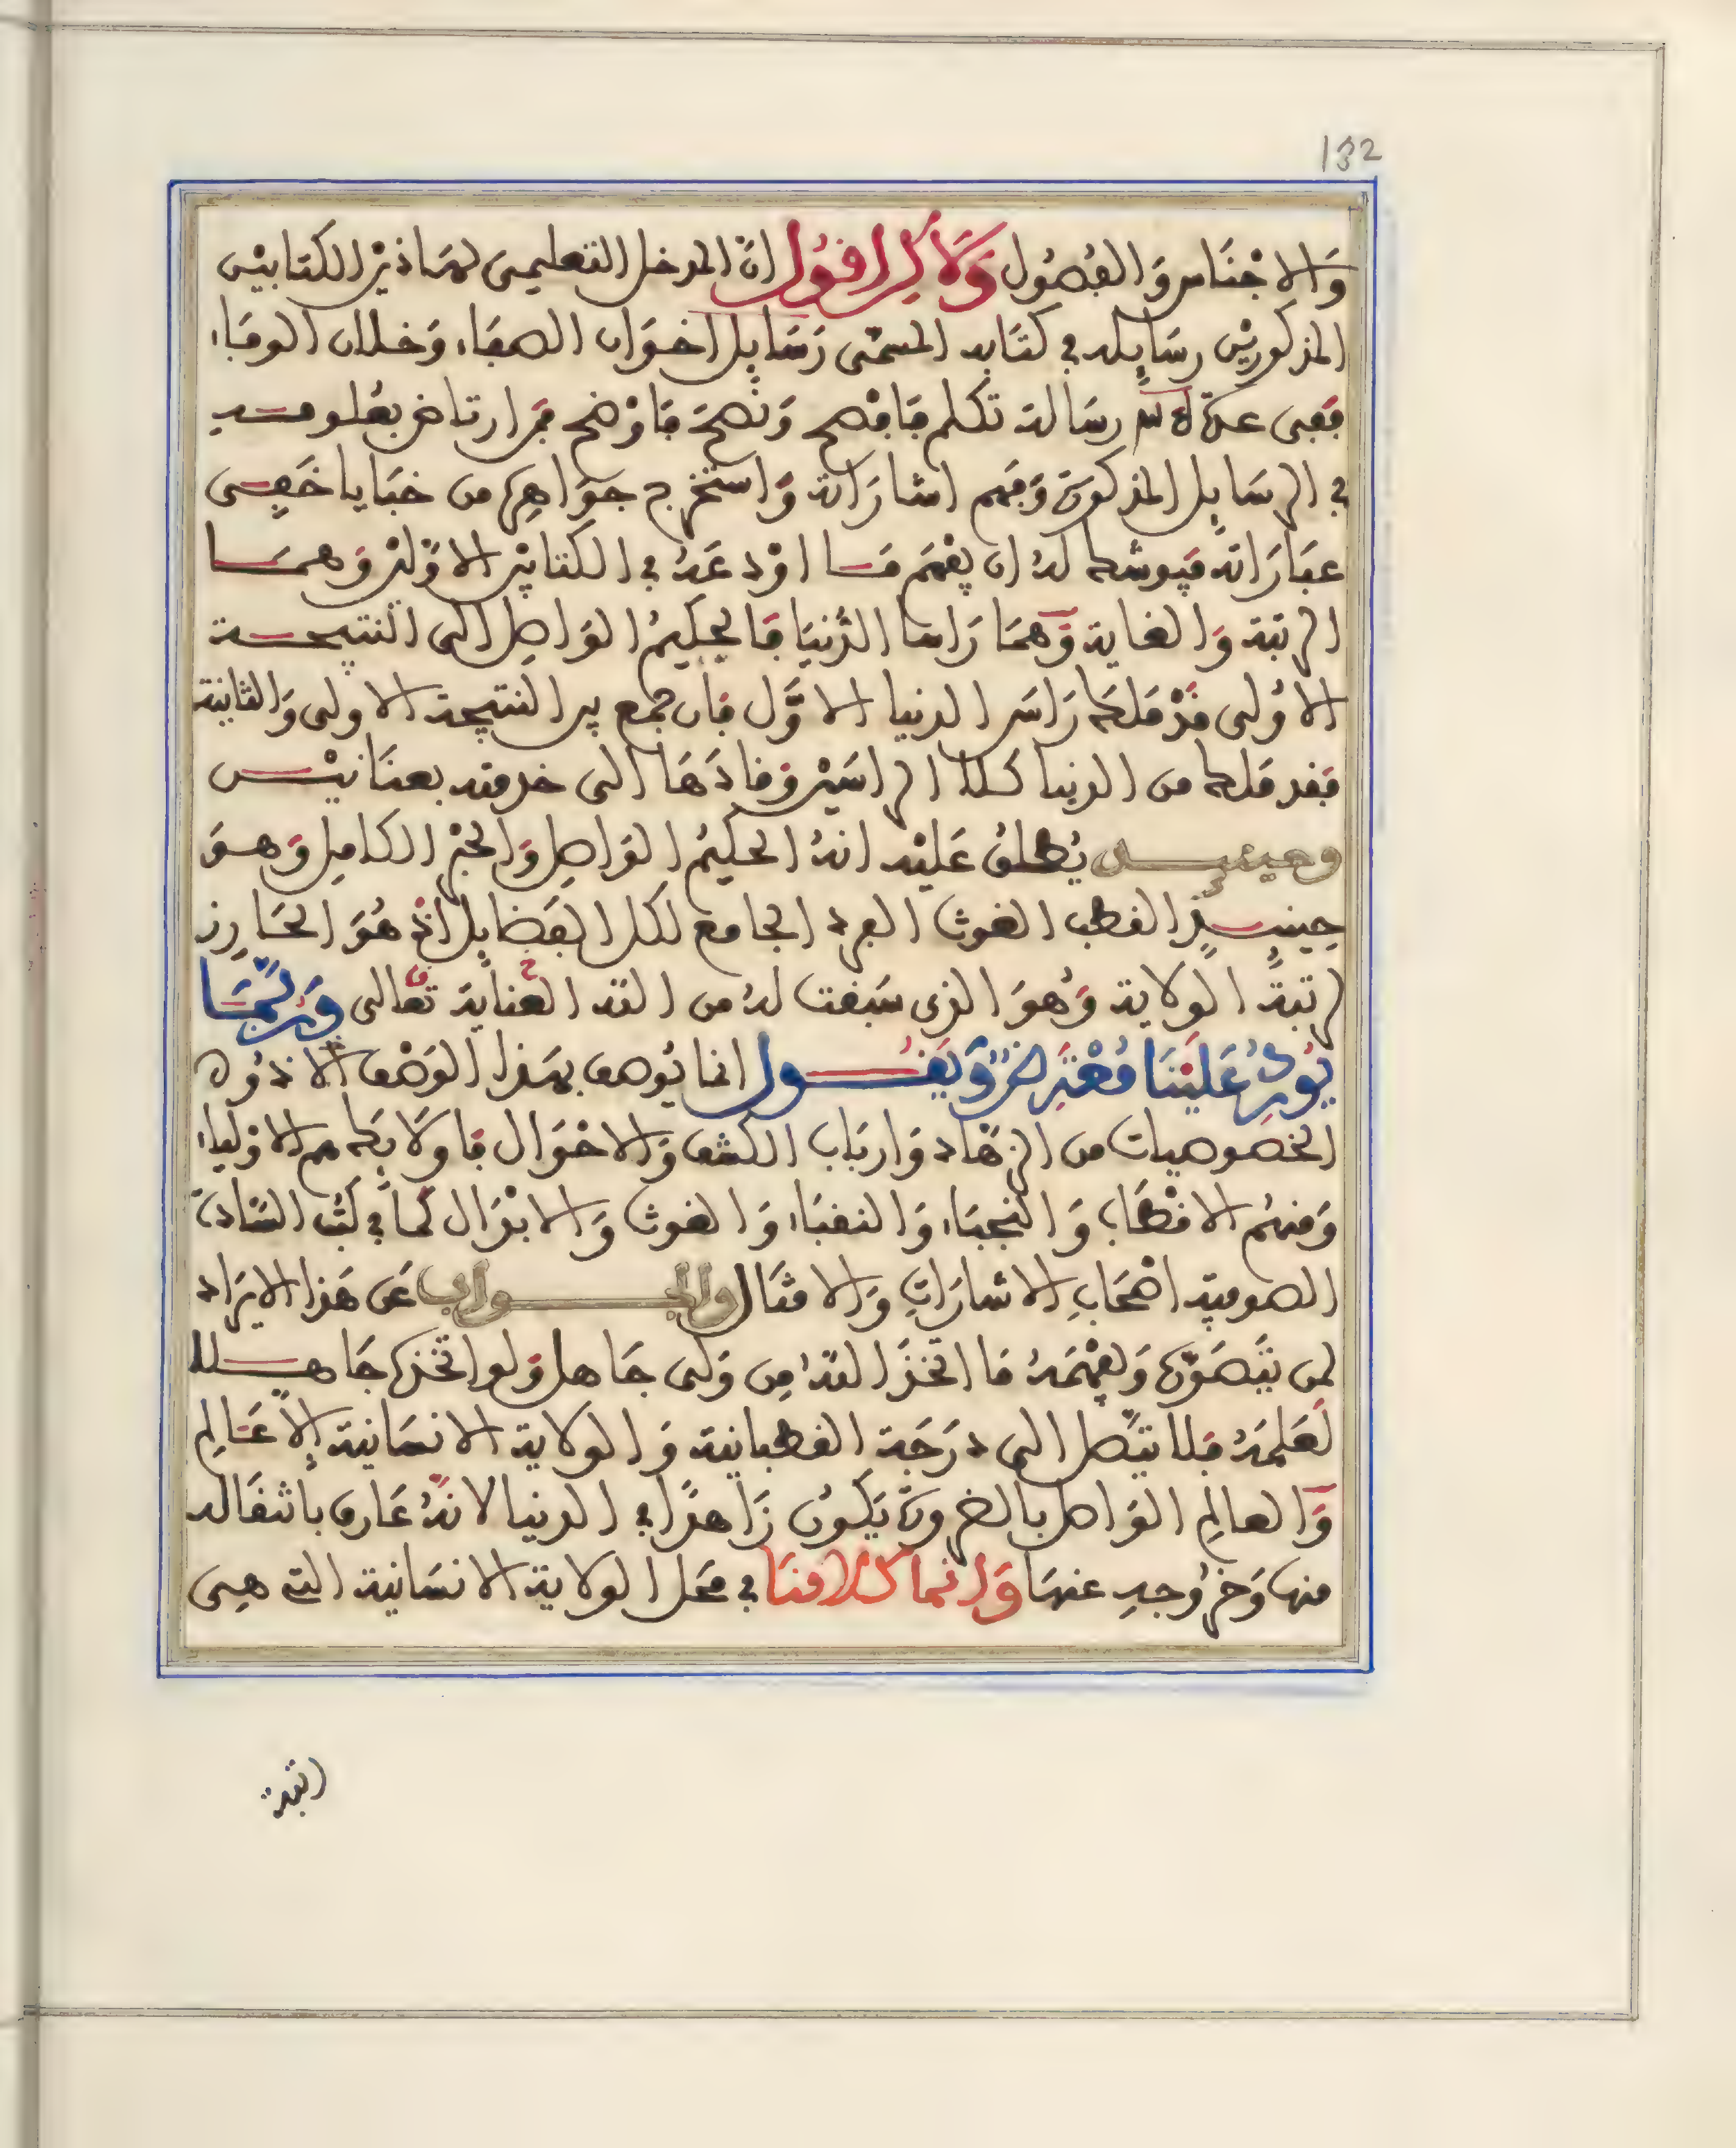 132
وَالاجْنَاس وَالفُصُول وَلاكِن اقول انّ المدخل التعليمي لهاذين الكتابين
المذكورين رسايله في كتابه المسمّى رَسَايِل اخوان الصفاء وَخلان الوفاء
ففي عدّة رسالة تكلم فافصح وَنصحَ فاوْضح فمن ارتاض بعلومه
في الرسَايل المذكورة وَفهم اشارَاته وَاستخرج جوَاهرها من خبَايا خَفِي
عبَارَاته فيوشك لهُ ان يفهَم مَا اوْدعَهُ في الكتابين الاوّلين وَهمَا
الرتبة وَالغاية وَهمَا رَاسا الدُّنيَا فالحكيمُ الوَاصل الى النتيجة
الاُولى قدْ مَلكَ رَاسَ الدنيا الاوَّل فان جمع بين النتيجة الاولى وَالثانية
فقد ملك من الدنيا كلا الراسَيْن وَقادَهَا الى خدمته بعنَانيْن
وحينئذ يُطلقُ عَليْه انهُ الحكيمُ الوَاصِل وَالحبْر الكامِل وَهوَ
حِينئِذٍ القطب الغوث الفرد الجامع لكل الفَضايل اذْ هُوَ الحَايز
رتبةَ الولاية وَهُوَ الذي سَبقت لهُ من الله العنايَة تعَالى وَرُبَّمَا
يُورِدُ عَليْنَا مُعْتَرِضٌ وَيَقُول انما يُوصف بهَذا الوَصْف الا ذوُوا
الخصوصيات من الزهّاد وَاربَاب الكشف وَالاحْوَال فاولائك هم الاوْلياء
وَمنهُم الاقطَاب وَالنجبَاء وَالنقبَاء وَالغوث وَالابْدَال كمَا في كتُب السَّادَة
الصوفية اصْحَابِ الاشارَاتِ وَالامثَال والجواب عَن هَذا الايرَاد
لمن يتَصَوّره وَيفهَمهُ مَا اتخذَ اللهُ مِن وَلي جَاهل وَلو اتخذه جَاهلا
لعَلمَهُ فلا يَصل الى درَجَة القطبانية وَالولاية الانسَانية إلاّ عَالِم
وَالعالِم الوَاصل بالضرورة يَكُون زَاهدًا في الدنيا لانهُ عَارف بانتقاله
منها وَخرُوجِهِ عنهَا وَانما كلامنَا في محَل الولاية الانسَانية التي هِي